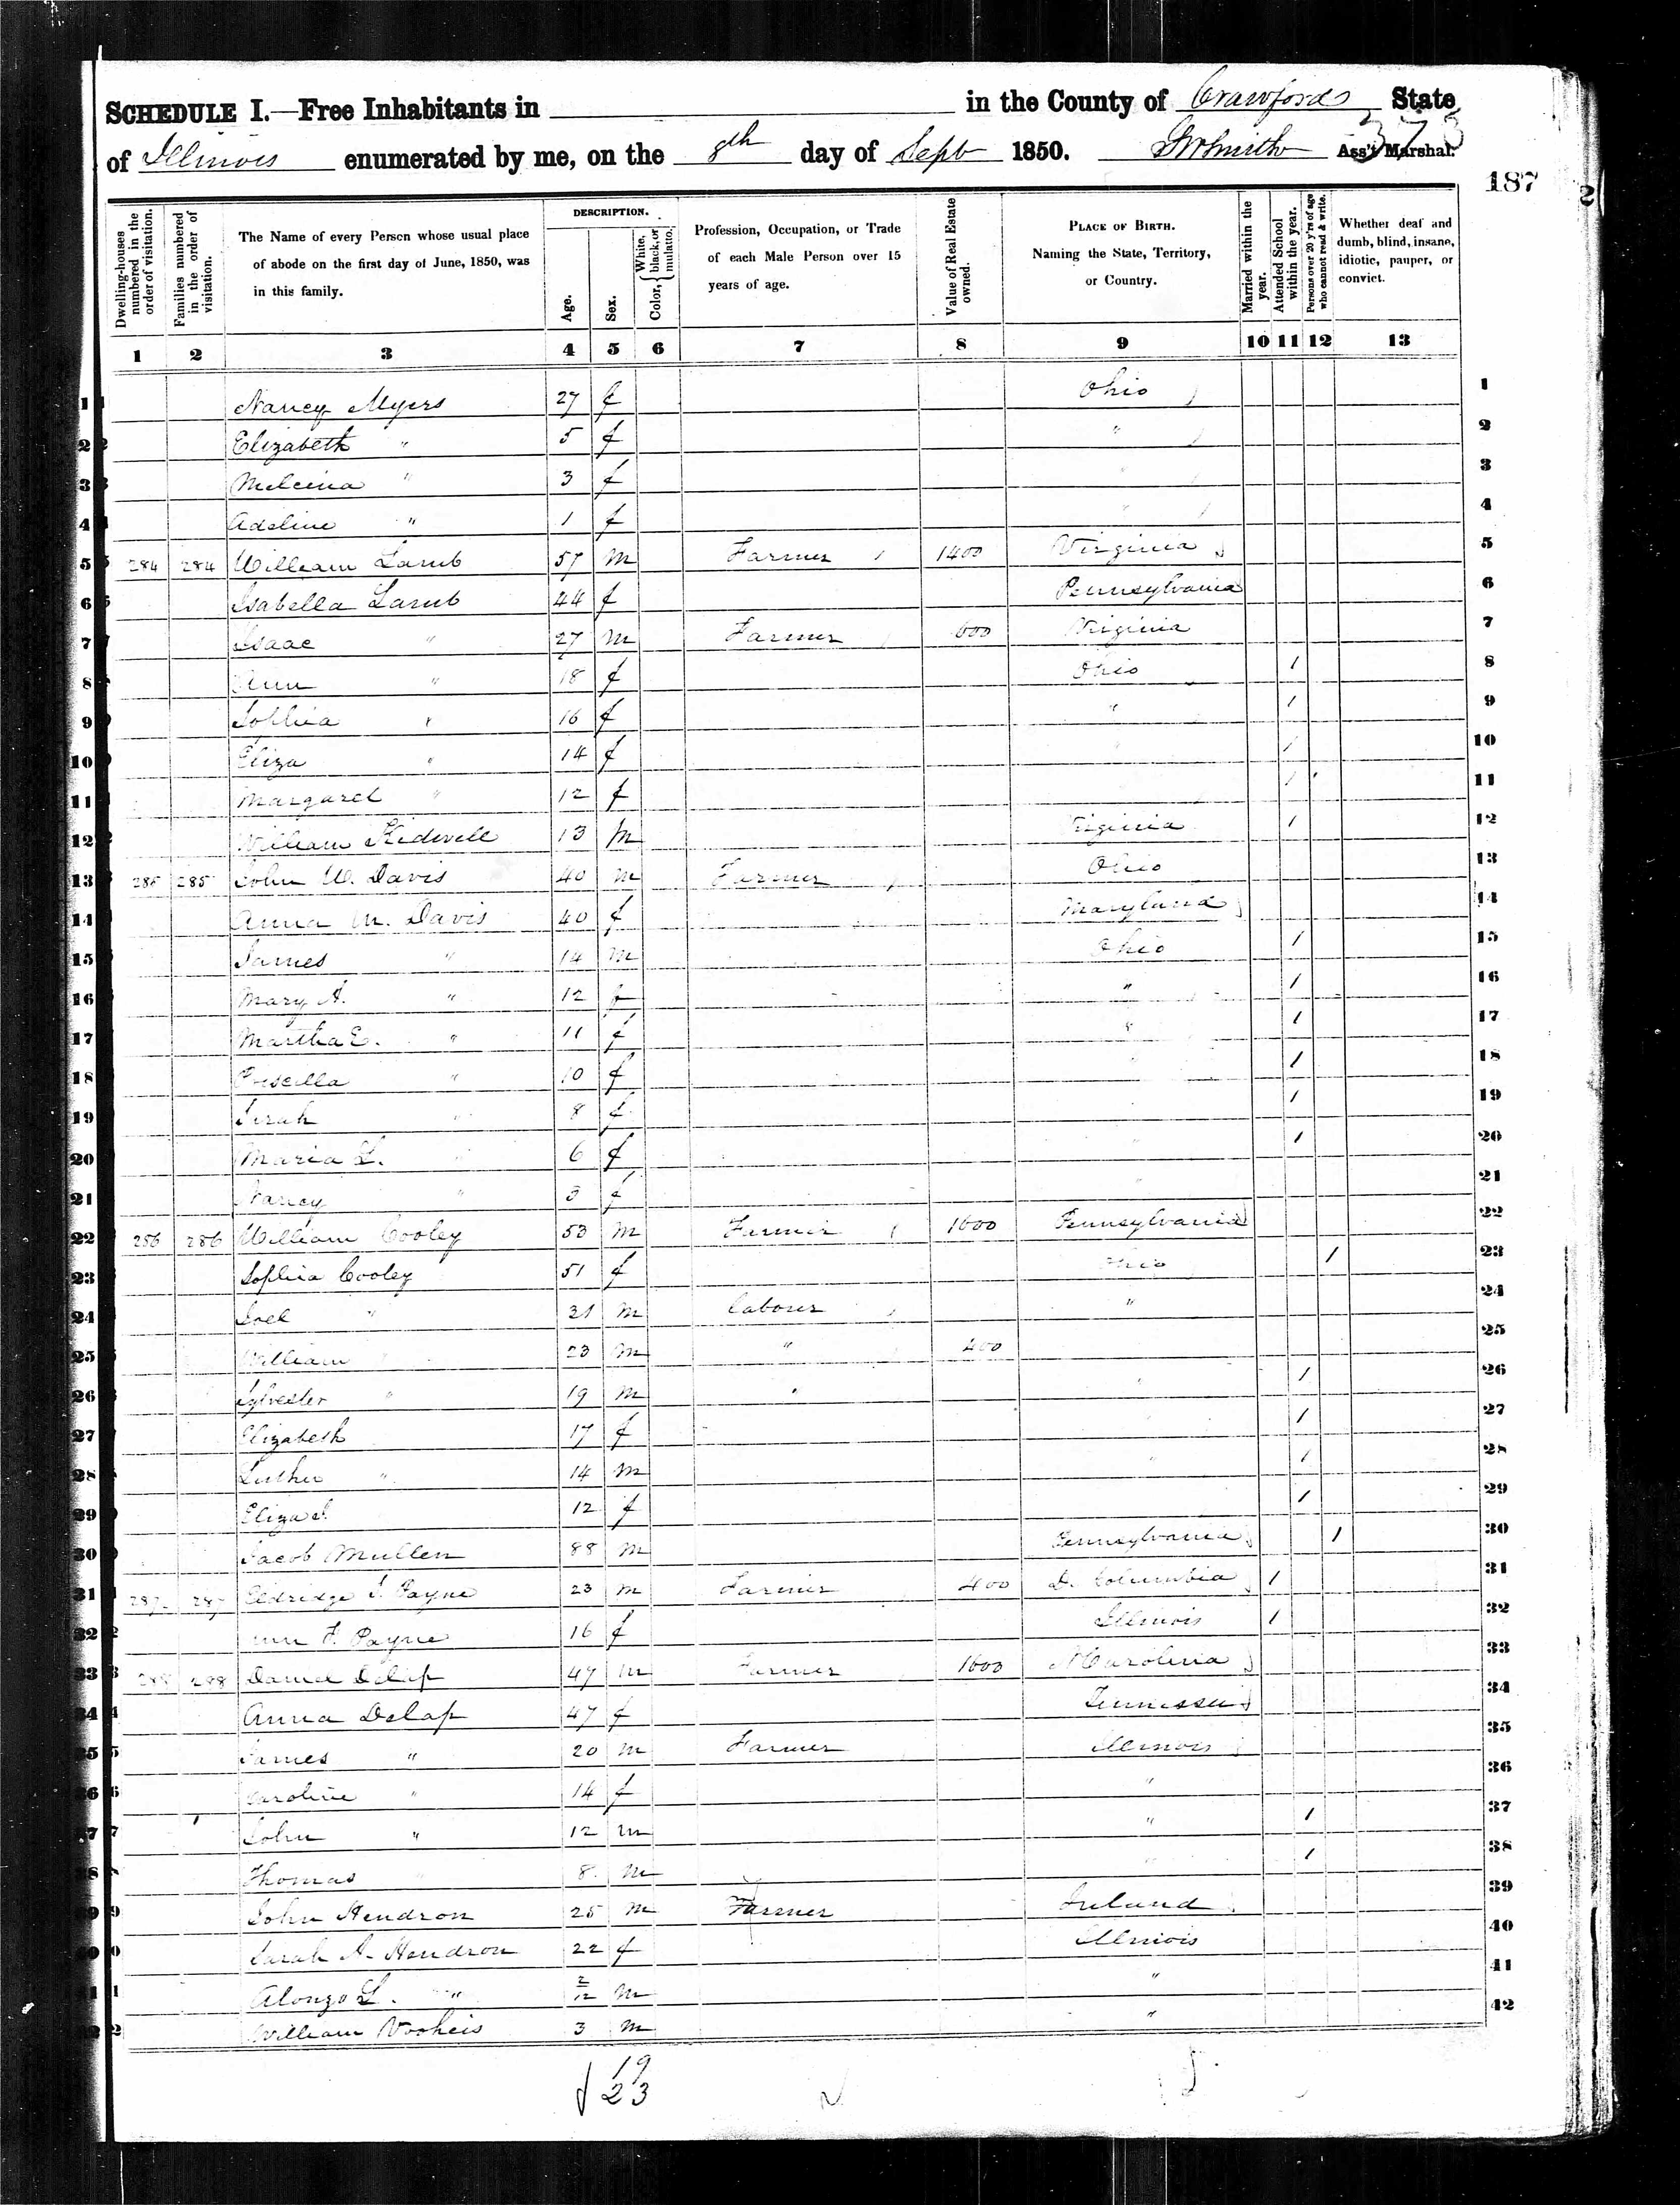 SCHEDULE I.—Free Inhabitants in in the County of Crawford State
of Illinois enumerated by me, on the 8th day of Sept 1850. Ass't Marshal.
187
Dwelling-houses numbered in the order of visitation.
Families numbered in the order of visitation.
The Name of every Person whose usual place of abode on the first day of June, 1850, was in this family.
DESCRIPTION.
Age.
Sex.
Color, { White, black, or mulatto.
Profession, Occupation, or Trade of each Male Person over 15 years of age.
Value of Real Estate owned.
PLACE OF BIRTH. Naming the State, Territory, or Country.
Married within the year.
Attended School within the year.
Persons over 20 y'rs of age who cannot read & write.
Whether deaf and dumb, blind, insane, idiotic, pauper, or convict.
1 2 3 4 5 6 7 8 9 10 11 12 13
1 Nancy Myers 27 f Ohio 1
2 Elizabeth " 5 f " 2
3 " 3 f " 3
4 Adeline " 1 f " 4
5 284 284 William Lamb 57 m Farmer 1400 Virginia 5
6 Isabella Lamb 44 f Pennsylvania 6
7 Isaac " 27 m Farmer 600 Virginia 7
8 Ann " 18 f Ohio 1 8
9 Sophia " 16 f " 1 9
10 Eliza " 14 f 1 10
11 Margaret " 12 f 1 11
12 William Kidwell 13 m Virginia 1 12
13 285 285 John W. Davis 40 m Farmer Ohio 13
14 Anna M. Davis 40 f Maryland 14
15 James " 14 m Ohio 1 15
16 Mary A. " 12 f " 1 16
17 Martha E. " 11 f " 1 17
18 Priscilla " 10 f " 1 18
19 Sarah " 8 f 1 19
20 Maria L. " 6 f " 1 20
21 Nancy " 3 f " 21
22 286 286 William Cooley 53 m Farmer 1600 Pennsylvania 22
23 Sophia Cooley 51 f Ohio 1 23
24 Joel " 21 m Labourer " 24
25 William " 23 m " 400 25
26 Sylvester " 19 m " " 1 26
27 Elizabeth 17 f 1 27
28 Luther " 14 m " 1 28
29 Eliza J. 12 f 1 29
30 Jacob Mullen 88 m Pennsylvania 1 30
31 287 287 Eldridge S. Payne 23 m Farmer 400 D. Columbia 1 31
32 Ann F. Payne 16 f Illinois 1 32
33 288 288 Daniel Delap 47 m Farmer 1600 N Carolina 33
34 Anna Delap 47 f Tennessee 34
35 James " 20 m Farmer Illinois 35
36 Caroline " 14 f " 36
37 John " 12 m " 1 37
38 Thomas " 8 m " 1 38
39 John Hendron 25 m Farmer Ireland 39
40 Sarah A. Hendron 22 f Illinois 40
41 Alonzo L. " 2/12 m " 41
42 William Vooheis 3 m " 42
19
23